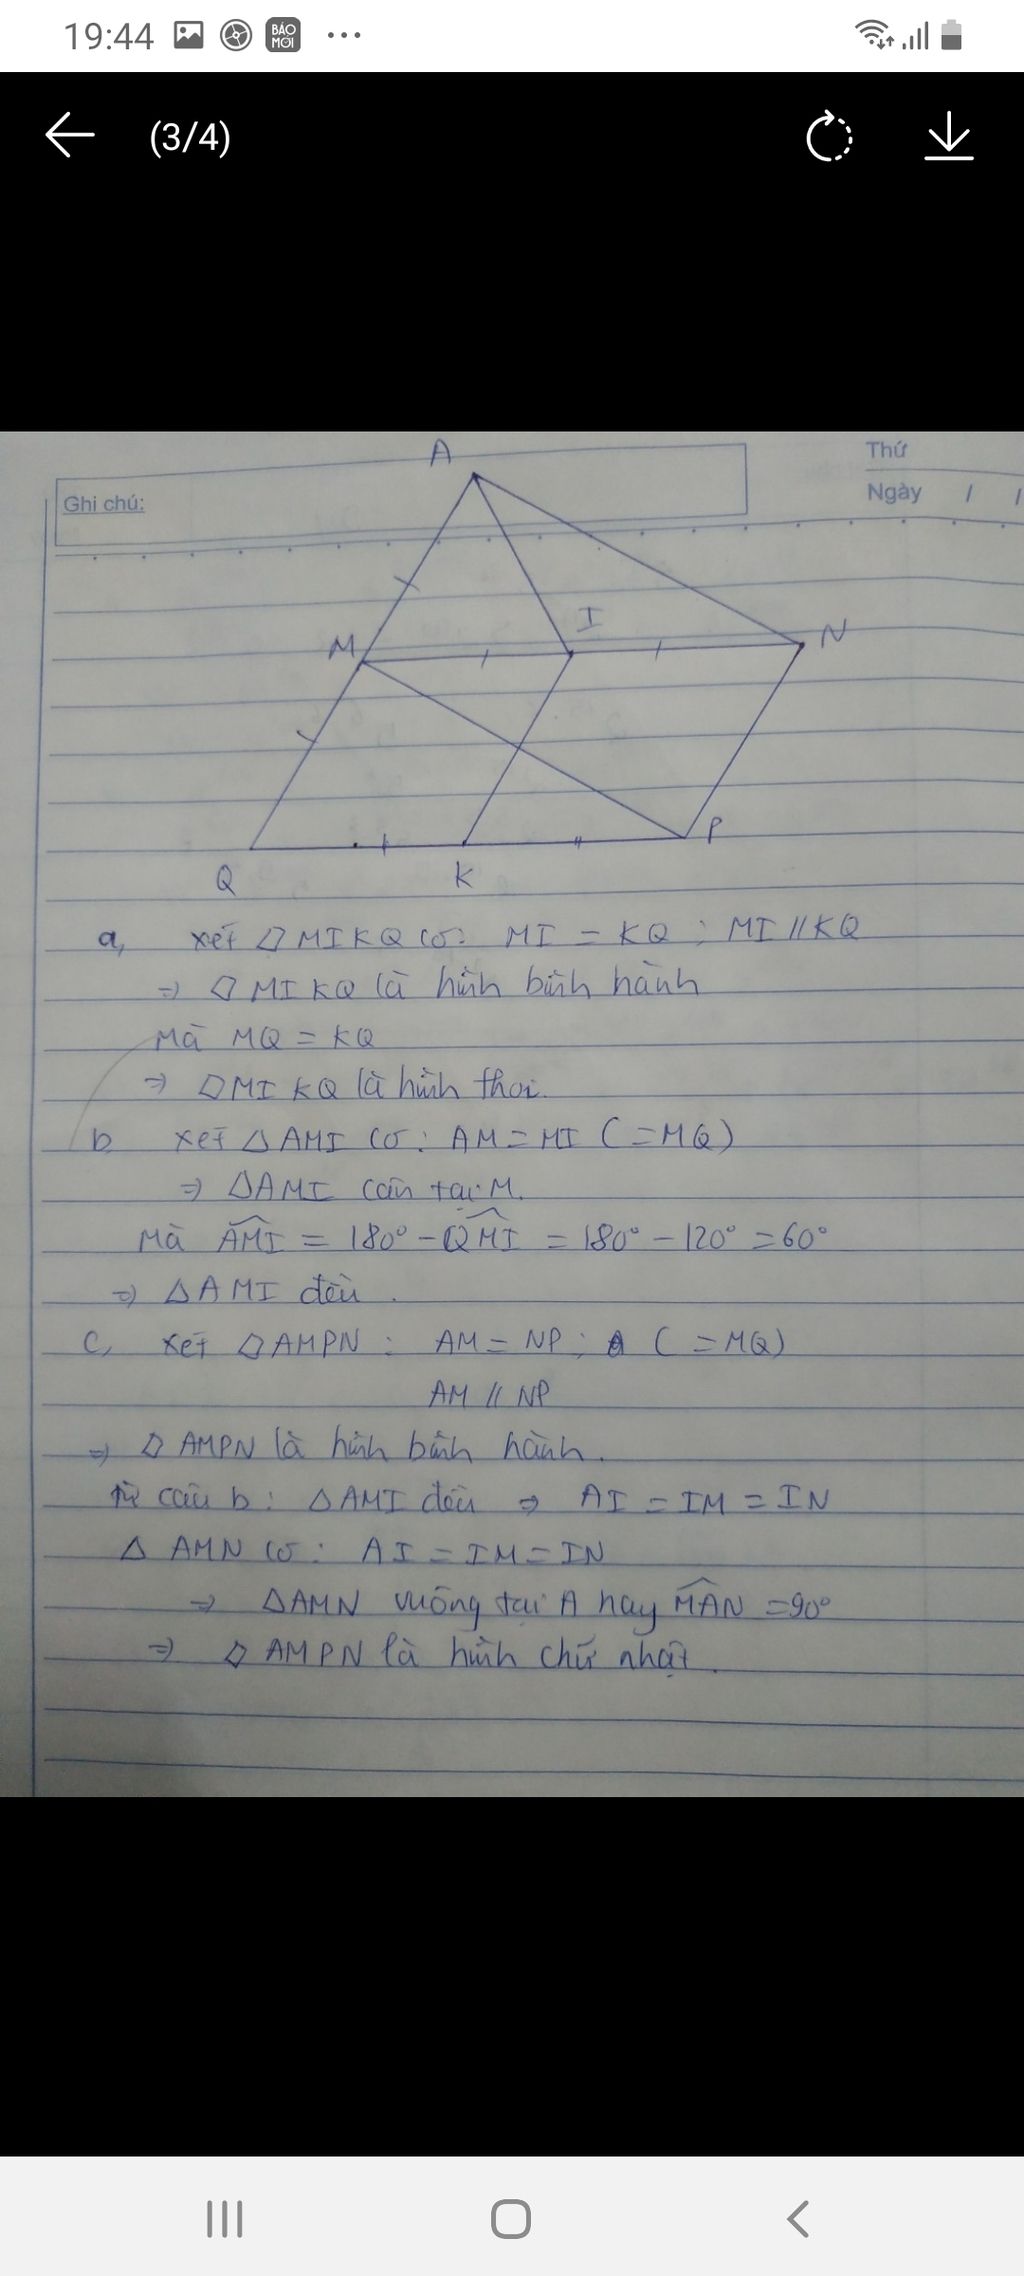 19:44
BÁO MỚI
(3/4)
Ghi chú:
Thứ
Ngày / /
A
M
I
N
Q
K
P
a, xét ▱ MIKQ có: MI = KQ ; MI // KQ
=> ▱ MIKQ là hình bình hành
Mà MQ = KQ
=> ▱ MIKQ là hình thoi.
b xét △ AMI có: AM = MI ( = MQ)
=> △AMI cân tại M.
Mà AMI = 180° - QMI = 180° - 120° = 60°
=> △ AMI đều.
C, xét ▱ AMPN : AM = NP ; ( = MQ)
AM // NP
=> ▱ AMPN là hình bình hành.
từ câu b: △ AMI đều => AI = IM = IN
△ AMN có: AI = IM = IN
=> △AMN vuông tại A hay MAN = 90°
=> ▱ AMPN là hình chữ nhật.